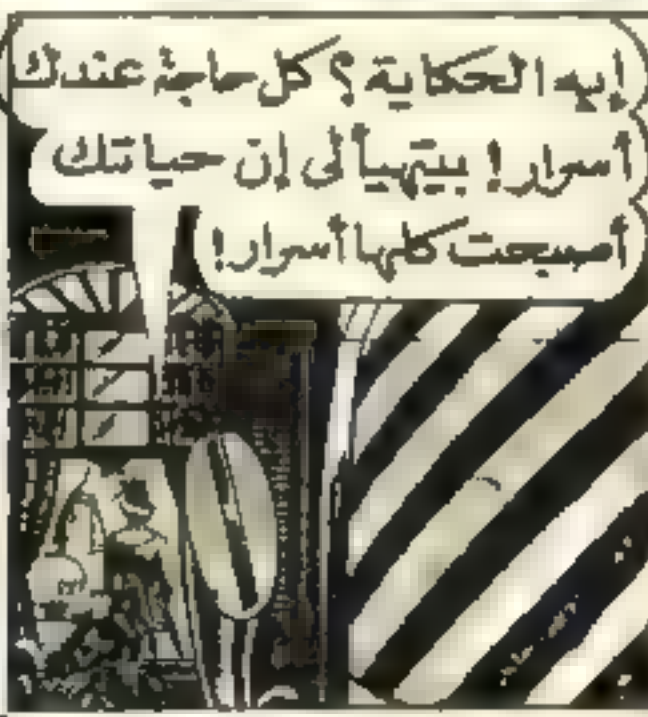 إيه الحكاية؟ كل حاجة عندك
أسرار! بيتهيألى إن حياتك
أصبحت كلها أسرار!